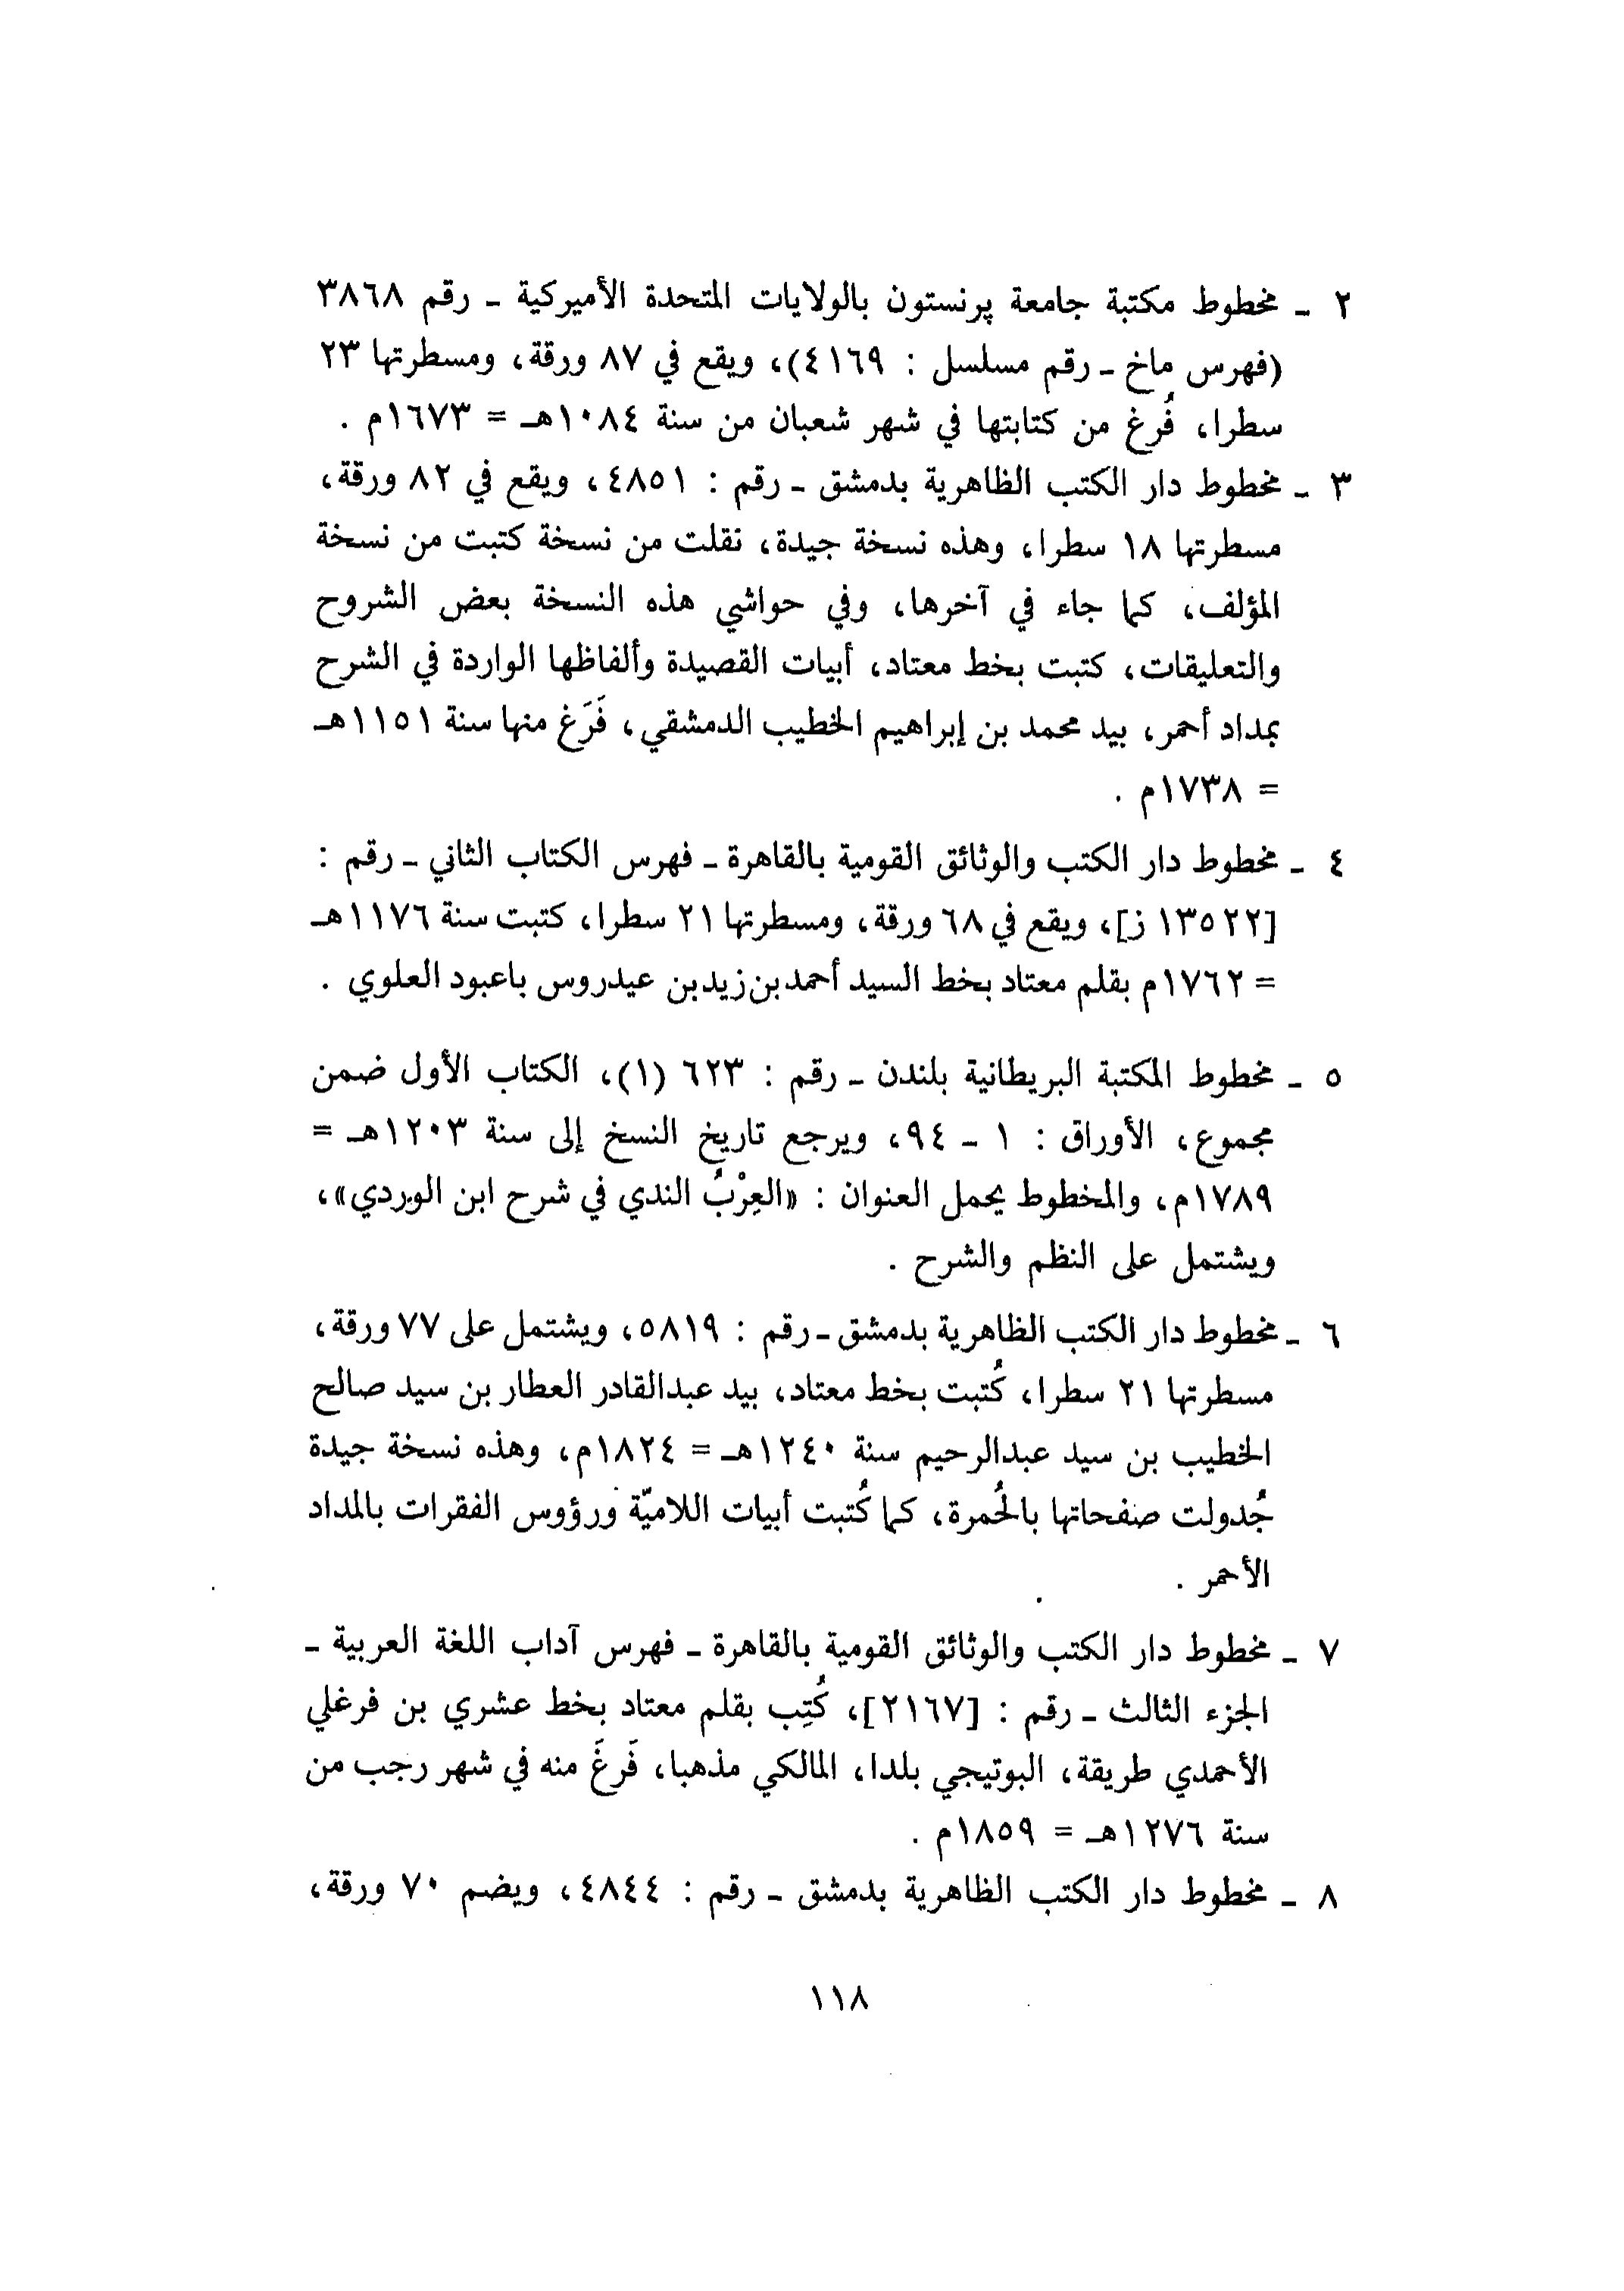 ٢ - مخطوط مكتبة جامعة پرنستون بالولايات المتحدة الأميركية - رقم ٣٨٦٨
(فهرس ماخ - رقم مسلسل : ٤١٦٩)، ويقع في ٨٧ ورقة، ومسطرتها ٢٣
سطرا، فُرغ من كتابتها في شهر شعبان من سنة ١٠٨٤هـ = ١٦٧٣م .
٣ - مخطوط دار الكتب الظاهرية بدمشق - رقم : ٤٨٥١، ويقع في ٨٢ ورقة،
مسطرتها ١٨ سطرا، وهذه نسخة جيدة، نقلت من نسخة كتبت من نسخة
المؤلف، كما جاء في آخرها، وفي حواشي هذه النسخة بعض الشروح
والتعليقات، كتبت بخط معتاد، أبيات القصيدة وألفاظها الواردة في الشرح
بمداد أحمر، بيد محمد بن إبراهيم الخطيب الدمشقي، فَرَغ منها سنة ١١٥١هـ
= ١٧٣٨م .
٤ - مخطوط دار الكتب والوثائق القومية بالقاهرة - فهرس الكتاب الثاني - رقم :
[١٣٥٢٢ ز]، ويقع في ٦٨ ورقة، ومسطرتها ٢١ سطرا، كتبت سنة ١١٧٦هـ
= ١٧٦٢م بقلم معتاد بخط السيد أحمد بن زيد بن عيدروس باعبود العلوي .
٥ - مخطوط المكتبة البريطانية بلندن - رقم : ٦٢٣ (١)، الكتاب الأول ضمن
مجموع، الأوراق : ١ - ٩٤، ويرجع تاريخ النسخ إلى سنة ١٢٠٣هـ =
١٧٨٩م، والمخطوط يحمل العنوان : «العِرْبُ الندي في شرح ابن الوردي»،
ويشتمل على النظم والشرح .
٦ - مخطوط دار الكتب الظاهرية بدمشق - رقم : ٥٨١٩، ويشتمل على ٧٧ ورقة،
مسطرتها ٢١ سطرا، كُتبت بخط معتاد، بيد عبدالقادر العطار بن سيد صالح
الخطيب بن سيد عبدالرحيم سنة ١٢٤٠هـ = ١٨٢٤م، وهذه نسخة جيدة
جُدولت صفحاتها بالحُمرة، كما كُتبت أبيات اللاميّة ورؤوس الفقرات بالمداد
الأحمر .
٧ - مخطوط دار الكتب والوثائق القومية بالقاهرة - فهرس آداب اللغة العربية -
الجزء الثالث - رقم : [٢١٦٧]، كُتِب بقلم معتاد بخط عشري بن فرغلي
الأحمدي طريقة، البوتيجي بلدا، المالكي مذهبا، فَرغَ منه في شهر رجب من
سنة ١٢٧٦هـ = ١٨٥٩م .
٨ - مخطوط دار الكتب الظاهرية بدمشق - رقم : ٤٨٤٤، ويضم ٧٠ ورقة،
١١٨